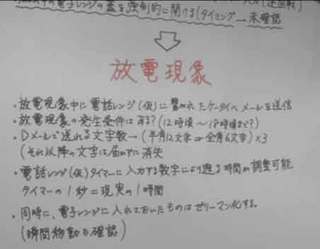 の電子レンジの蓋を強制的に開ける(タイミング→未確認
放電現象
・放電現象中に電話レンジ(仮)に繋がれたケータイへメールを送信
・放電現象の発生条件は ある?(12時頃〜18時頃まで?)
・Dメールで送れる文字数→(半角12文字=全角6文字)×3
(それ以降の文字は届かずに消失
・電話レンジ(仮)タイマーに入力する数字により遡る時間が調整可能
タイマーの1秒=現実の1時間
・同時に、電子レンジに入れておいたものはゼリーマン化する。
(瞬間移動も確認)